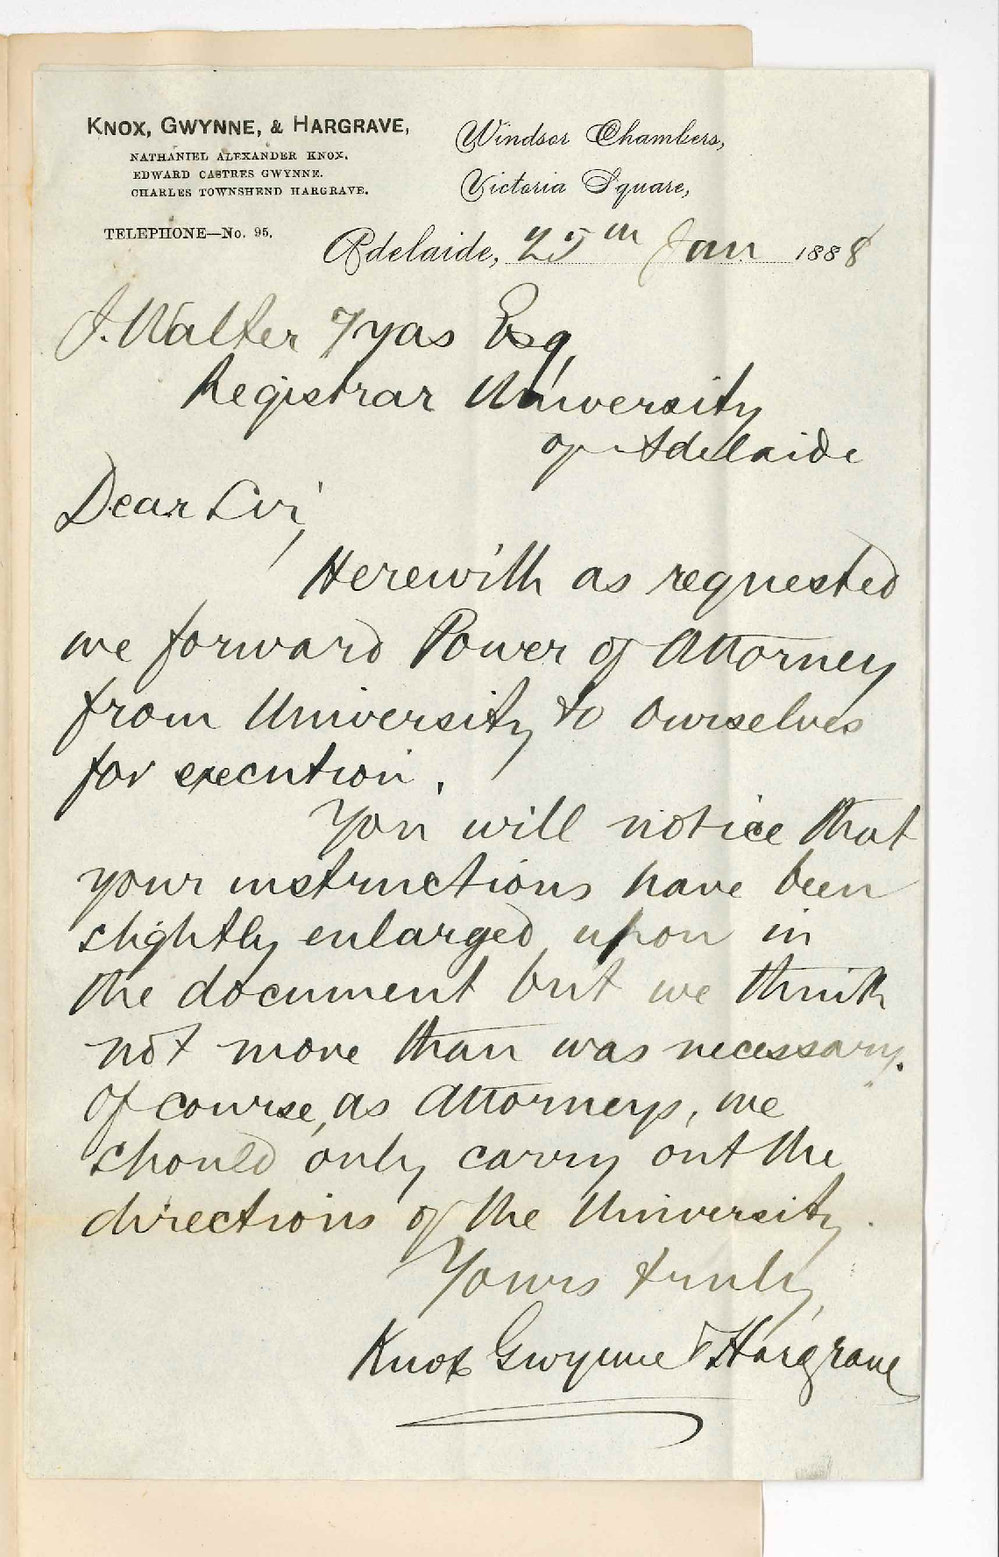 KNOX, GWYNNE, & HARGRAVE,
NATHANIEL ALEXANDER KNOX.
EDWARD CASTRES GWYNNE.
CHARLES TOWNSHEND HARGRAVE.
TELEPHONE—No. 95.
Windsor Chambers,
Victoria Square,
Adelaide, 25th Jan 1888
J. Walter Tyas Esq,
Registrar University
of Adelaide
Dear Sir,
Herewith as requested
we forward Power of Attorney
from University to ourselves
for execution.
You will notice that
your instructions have been
slightly enlarged upon in
the document but we think
not more than was necessary.
Of course, as Attorneys, we
should only carry out the
directions of the University.
Yours truly,
Knox Gwynne & Hargrave